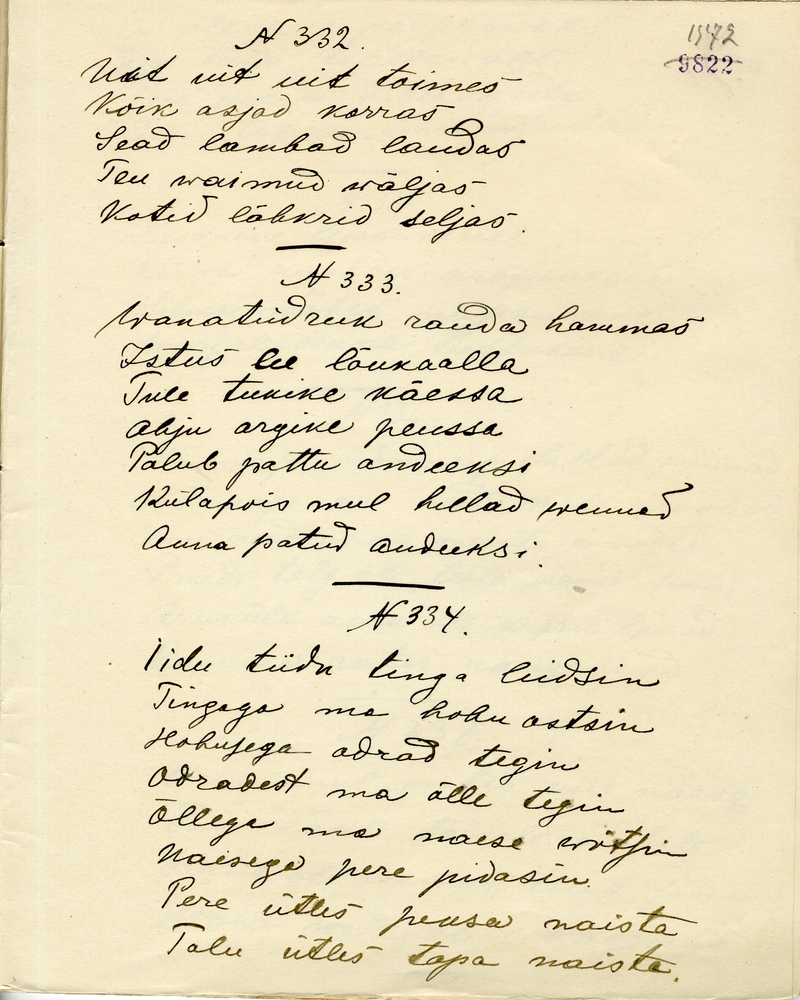 N 332.
1572
9822
Uit uit uit toimes
Kõik asjad korras
Sead lambad laudas
Teu waimud wäljas
Kotid lähkrid seljas.
N 333.
Wanatüdruk rauda hammas
Istus lee lõukaalla
Tule tukike käessa
Ahju argike peussa
Palub pattu andeeksi
Külapois mul hellad wenned
Anna patud andeeksi.
N 334.
Iidu tiidu tinga leidsin
Tingaga ma hobu ostsin
Hobusega odrad tegin
Odradest ma õlle tegin
Õllega ma naese wõtsin
Naisega pere pidasin.
Pere ütles peksa naista
Talu ütles tapa naista.